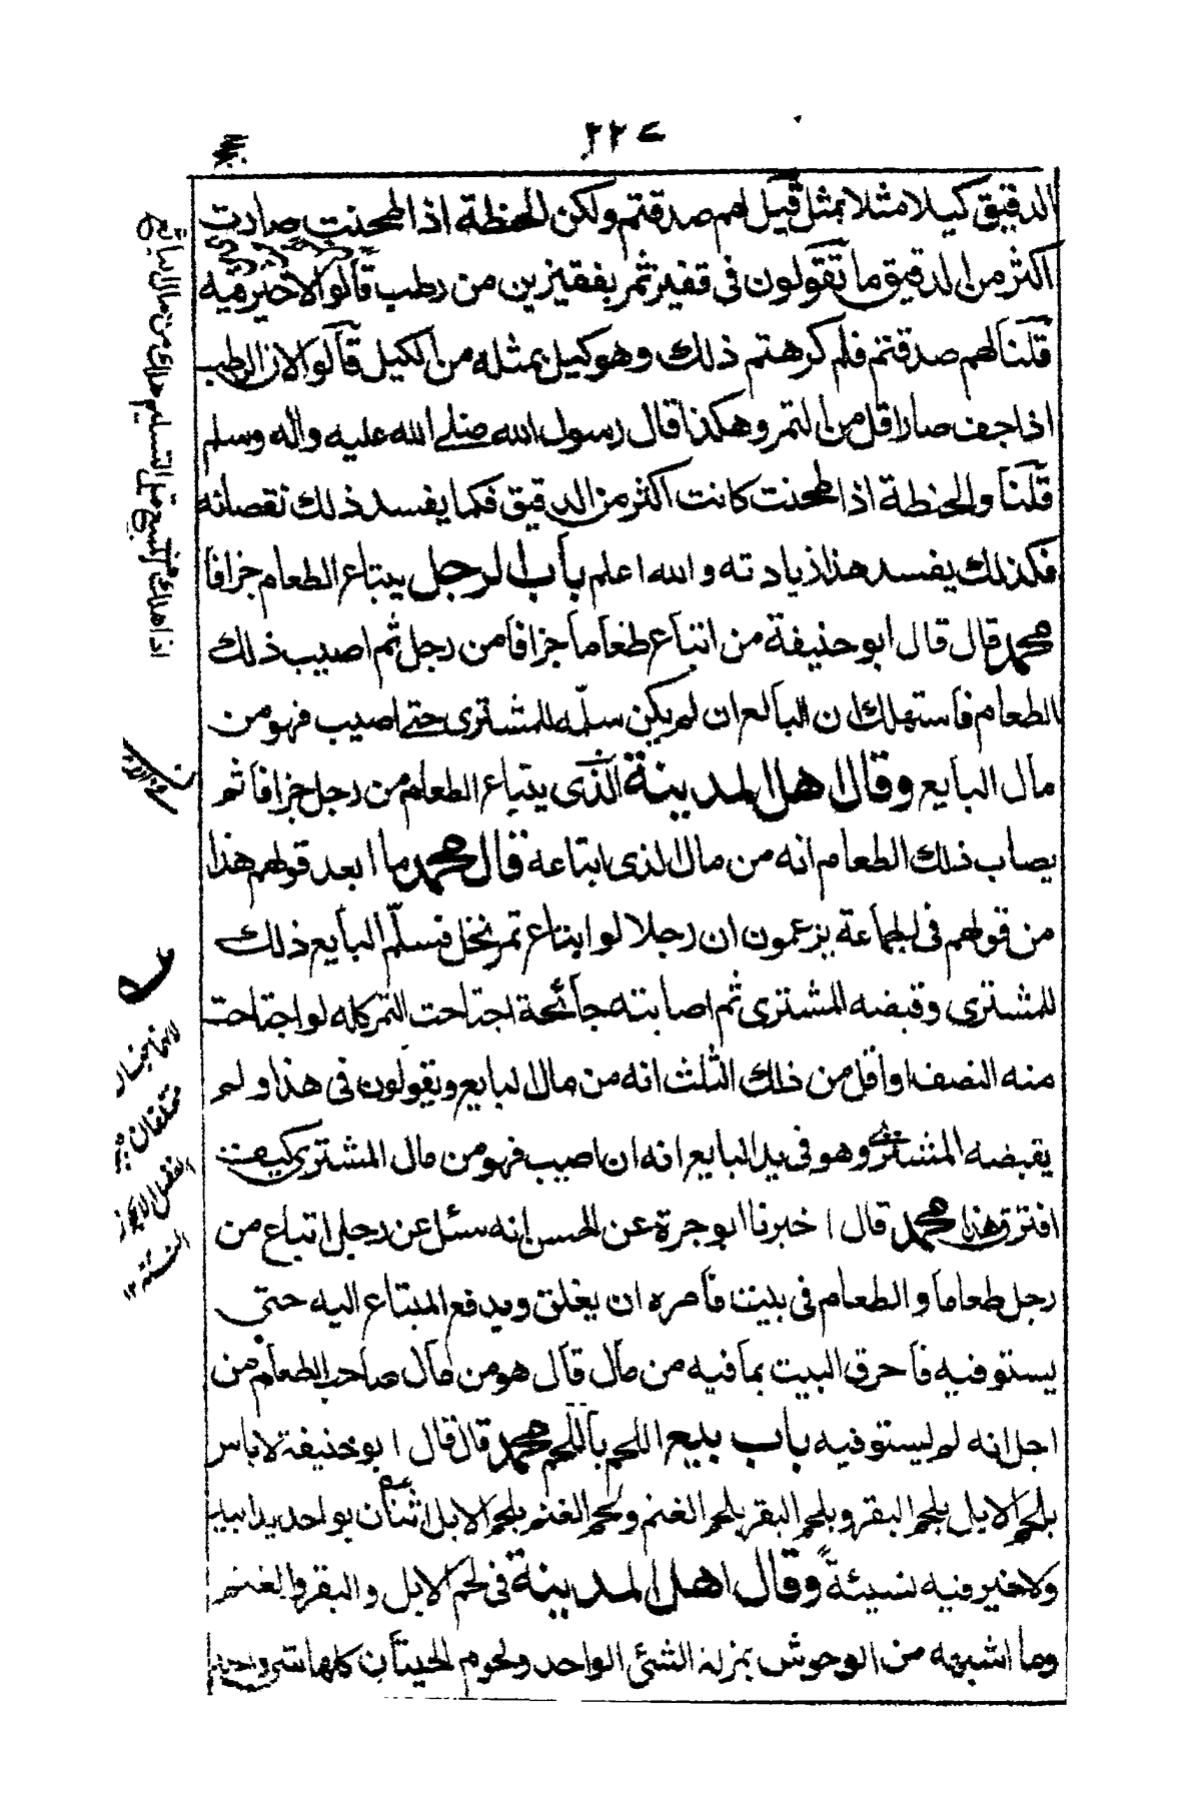 ٢٢٤
الدقيق كيلا مثلا بمثل قيل لهم صدقتم ولكن الحنطة اذا طحنت صارت
اكثر من الدقيق ما تقولون فى قفيز تمر بقفيزين من رطب قالوا لا خير فيه
قلنا لهم صدقتم فلم كرهتم ذلك وهو كيل بمثله من الكيل قالوا لان الرطب
اذا جف صار اقل من التمر وهكذا قال رسول الله صلى الله عليه واله وسلم
قلنا والحنطة اذا طحنت كانت اكثر من الدقيق فكما يفسد ذلك نقصانه
فكذلك يفسد هذا زيادته والله اعلم باب الرجل يبتاع الطعام جزافا
محمد قال قال ابو حنيفة من ابتاع طعاما جزافا من رجل ثم اصيب ذلك
الطعام فاستهلك ان البائع ان لم يكن سلمه للمشترى حتى اصيب فهو من
مال البايع وقال اهل المدينة الذى يبتاع الطعام من رجل جزافا ثم
يصاب ذلك الطعام انه من مال الذى ابتاعه قال محمد ما ابعد قولهم هذا
من قولهم فى الجماعة يزعمون ان رجلا لو ابتاع تمر نخل فسلم البايع ذلك
للمشترى وقبضه المشترى ثم اصابته جائحة اجتاحت التمر كله لو اجتاحت
منه النصف او اقل من ذلك الثلث انه من مال البايع ويقولون فى هذا ولم
يقبضه المشترى وهو فى يد البايع انه ان اصيب فهو من مال المشترى كيف
افترق هذا محمد قال اخبرنا ابو جرة عن الحسن انه سئل عن رجل ابتاع من
رجل طعاما والطعام فى بيت فامره ان يغلق ويدفع المبتاع اليه حتى
يستوفيه فاحرق البيت بما فيه من مال قال هو من مال صاحب الطعام من
اجل انه لم يستوفيه باب بيع اللحم باللحم محمد قال قال ابو حنيفة لا باس
بلحم الابل بلحم البقر وبلحم البقر بلحم الغنم ولحم الغنم بلحم الابل اثنان بواحد يدا بيد
ولا خير فيه نسيئة وقال اهل المدينة فى لحم الابل والبقر والغنم
وما اشبهه من الوحوش بمنزلة الشئ الواحد ولحوم الحيتان كلها شئ واحد